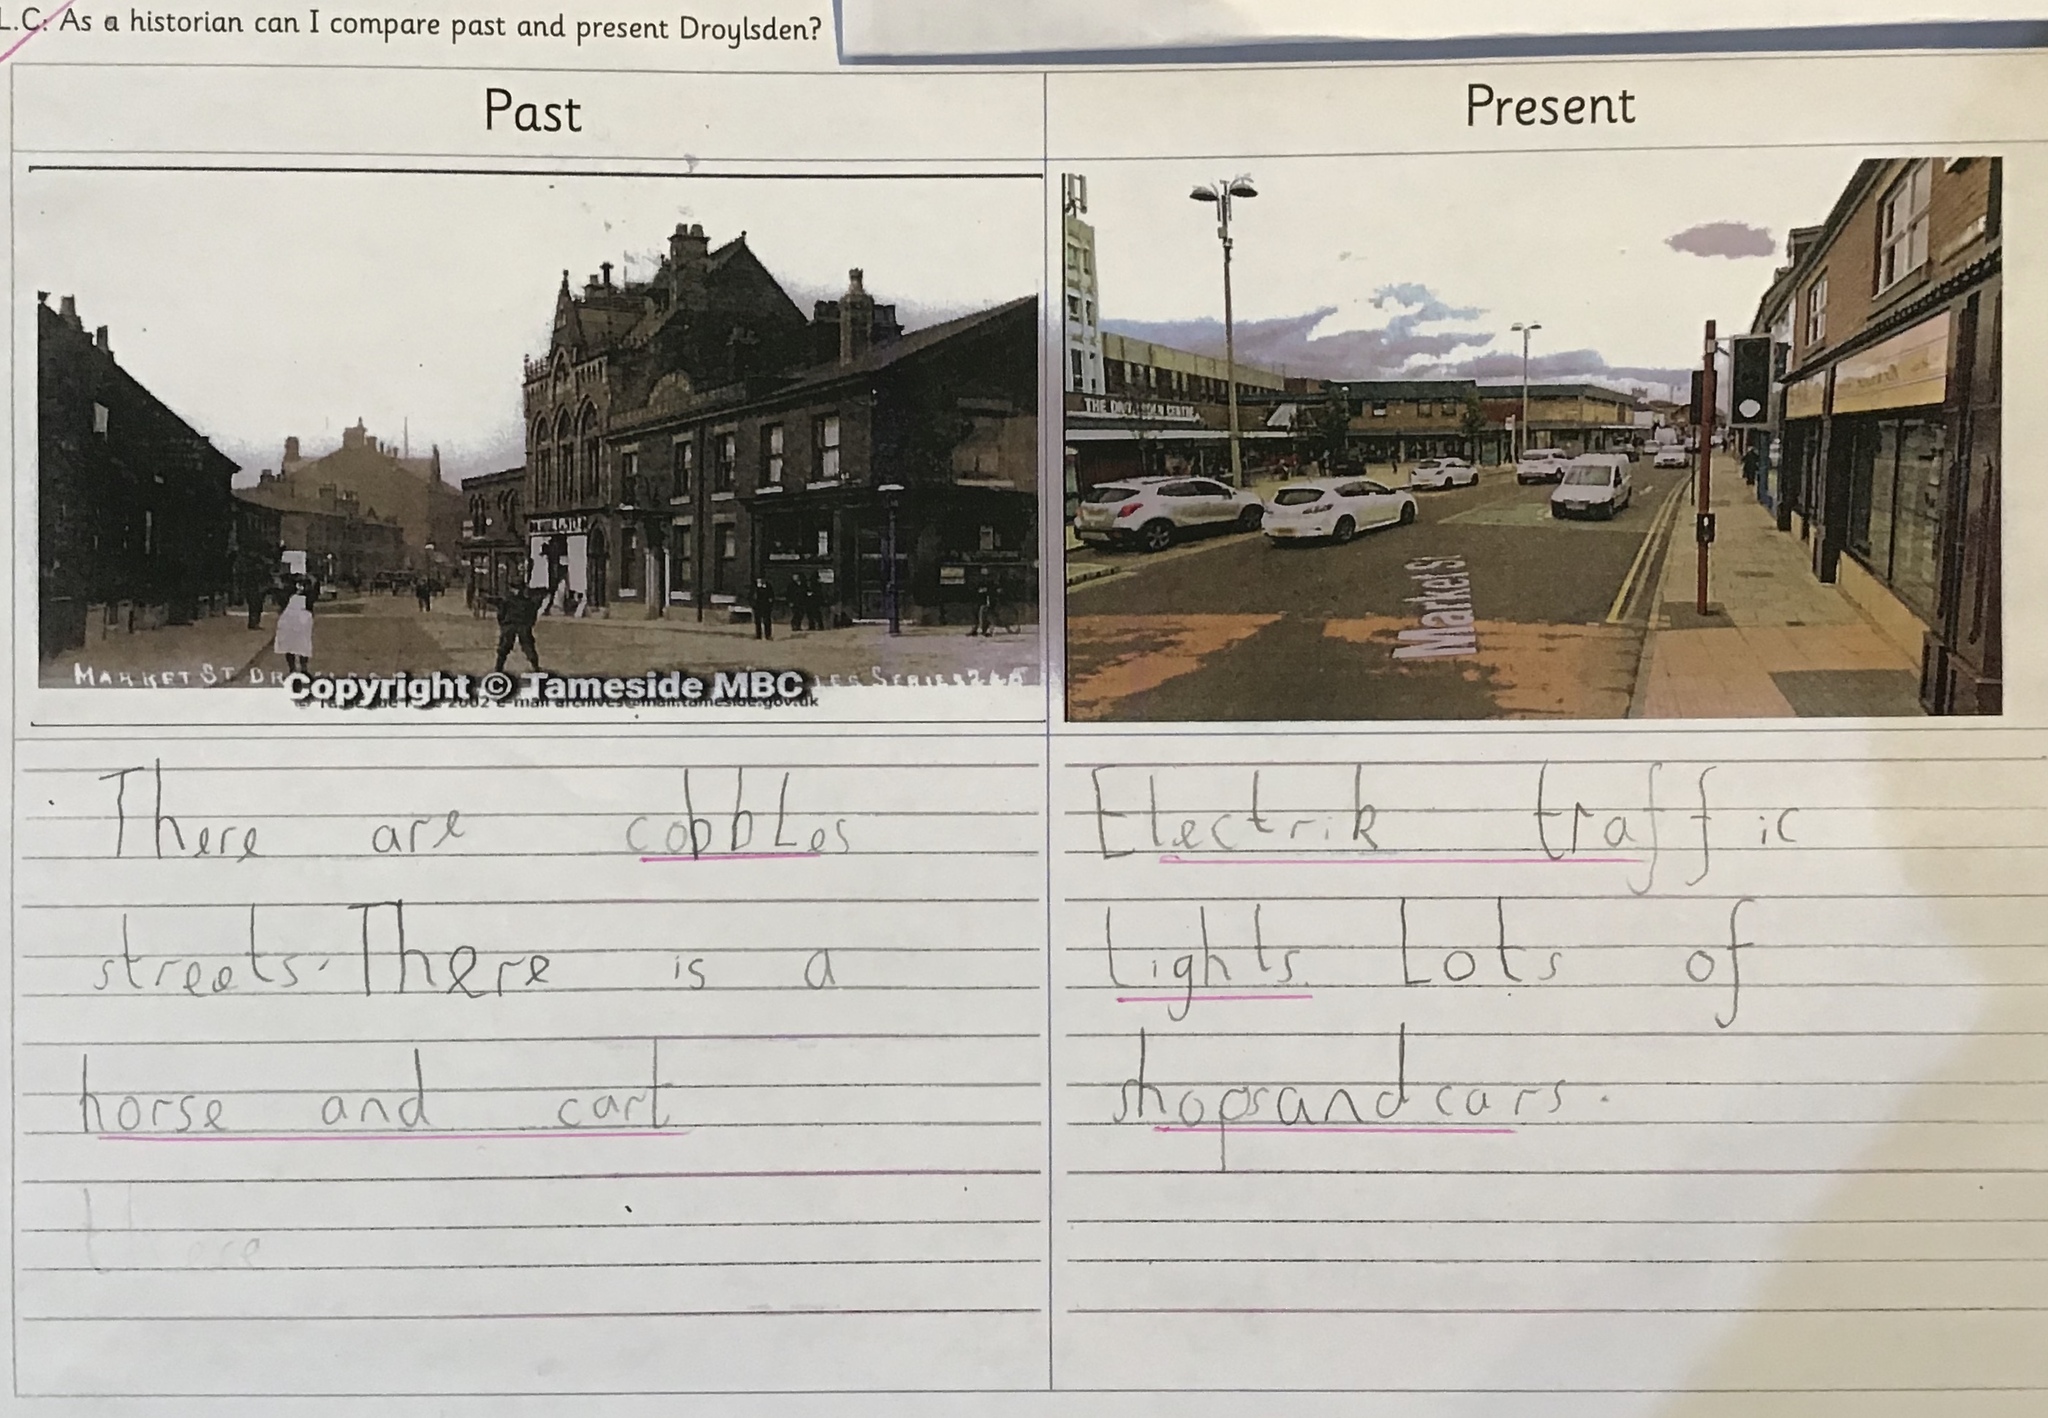 L.C: As a historian can I compare past and present Droylsden?
Past
Present
MARKET ST
SERIES
Copyright © Tameside MBC
2002 e-mail archives@mail.tameside.gov.uk
THE CENTRE
Market St
There are cobbLes
streets. There is a
horse and cart
there
Electrik traffic
Lights. Lots of
shopsand cars.